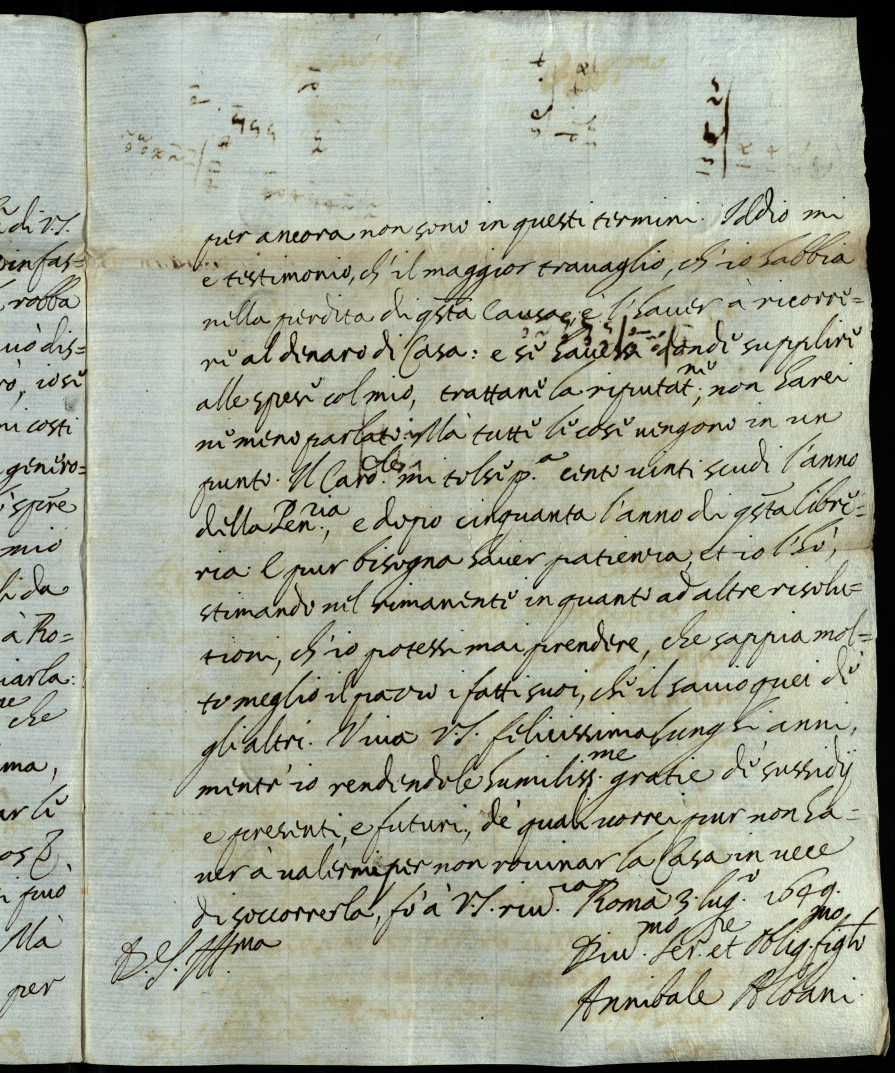 per ancora non sono in questi termini. Iddio mi
e testimonio, ch'il maggior travaglio, ch'io habbia
nella perdita di q̃sta Causa, è l'haver à ricorre=
re al denaro di Casa: e se havessi onde supplire
alle spese col mio, trattane la riputat.ne, non harei
ne meno parlato. Mà tutte le cose vengono in un
punto. Il Card.le mi tolse p.a cento vinti scudi l'anno
della Pen.ria, e dopo cinquanta l'anno di q̃sta libre=
ria: e pur bisogna haver patienza, et io l'hò,
stimando nel rimanente in quanto ad altre risolu=
tioni, ch'io potessi mai prendere, che sappia mol=
to meglio il pazzo i fatti suoi, che il savio quei de
gli altri. Viva V.S. felicissima lunghi anni,
mentr'io rendendole humiliss.me gratie de' sussidij
e presenti, e futuri, de' quali vorrei pur non ha=
ver à valermi per non rovinar la Casa in vece
di soccorrerla, fò à V.S. riv.za Roma 3. lug.o 1649.
D. V.S. Ill.ma
Div.mo Ser.re et Oblig.mo figlio
Annibale Albani.
à di V.S.
robba
uò dis=
rò, io se
ni costi
genero=
mio
li da
à Ro=
iarla:
che
ma,
ar le
i può
Mà
per